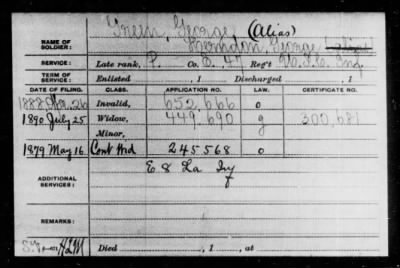 Green, George, (Alias)
NAME OF SOLDIER: Herndon, George (alias)
SERVICE: Late rank, P. Co. D, 41 Reg't U.S.C. Inf.
TERM OF SERVICE: Enlisted , 1 Discharged , 1
DATE OF FILING. CLASS. APPLICATION NO. LAW. CERTIFICATE NO.
1888 Apr. 26 Invalid, 652,666 o
1890 July 25 Widow, 449.690 g 300,681
Minor,
1879 May 16 Cont Hrd 245568 o
ADDITIONAL SERVICES: E 8 La Inf
REMARKS:
Died , 1 , at